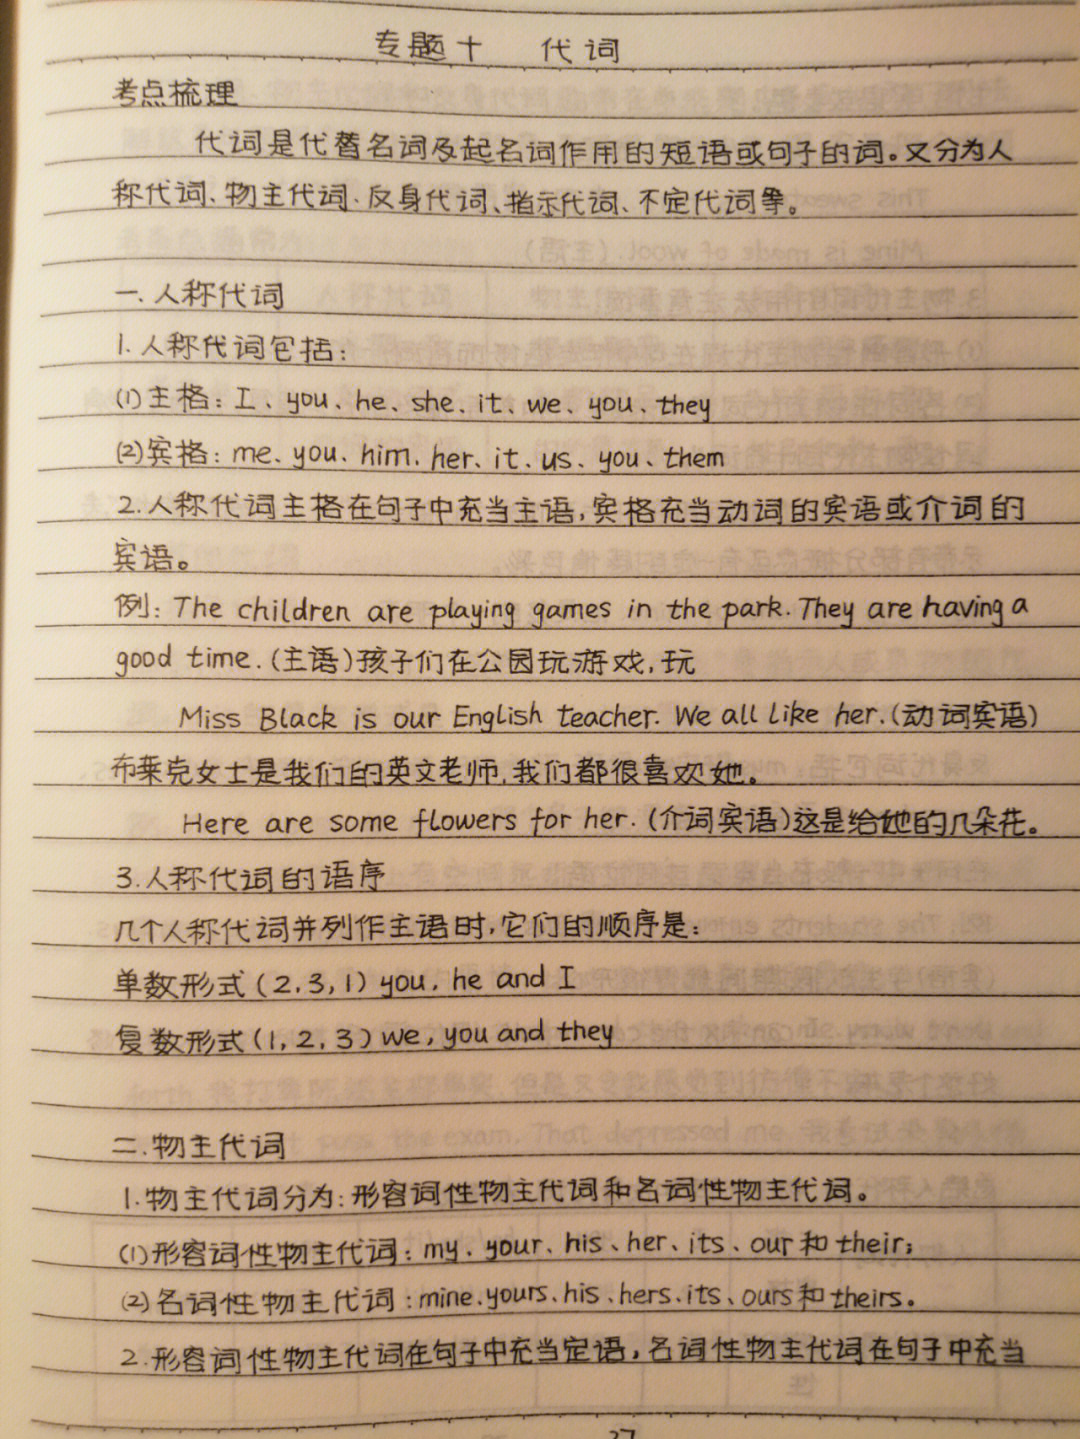 专题十 代词
考点梳理
代词是代替名词及起名词作用的短语或句子的词。又分为人
称代词、物主代词、反身代词、指示代词、不定代词等。
一.人称代词
1.人称代词包括:
(1)主格: I、you、he、she、it、we、you、they
(2)宾格: me、you、him、her、it、us、you、them
2.人称代词主格在句子中充当主语,宾格充当动词的宾语或介词的
宾语。
例: The children are playing games in the park. They are having a
good time. (主语)孩子们在公园玩游戏,玩
Miss Black is our English teacher. We all like her. (动词宾语)
布莱克女士是我们的英文老师,我们都很喜欢她。
Here are some flowers for her. (介词宾语)这是给她的几朵花。
3.人称代词的语序
几个人称代词并列作主语时,它们的顺序是:
单数形式(2,3,1) you, he and I
复数形式(1,2,3) we, you and they
二.物主代词
1.物主代词分为:形容词性物主代词和名词性物主代词。
(1)形容词性物主代词: my、your、his、her、its、our和their;
(2)名词性物主代词: mine、yours、his、hers、its、ours和theirs。
2.形容词性物主代词在句子中充当定语,名词性物主代词在句子中充当